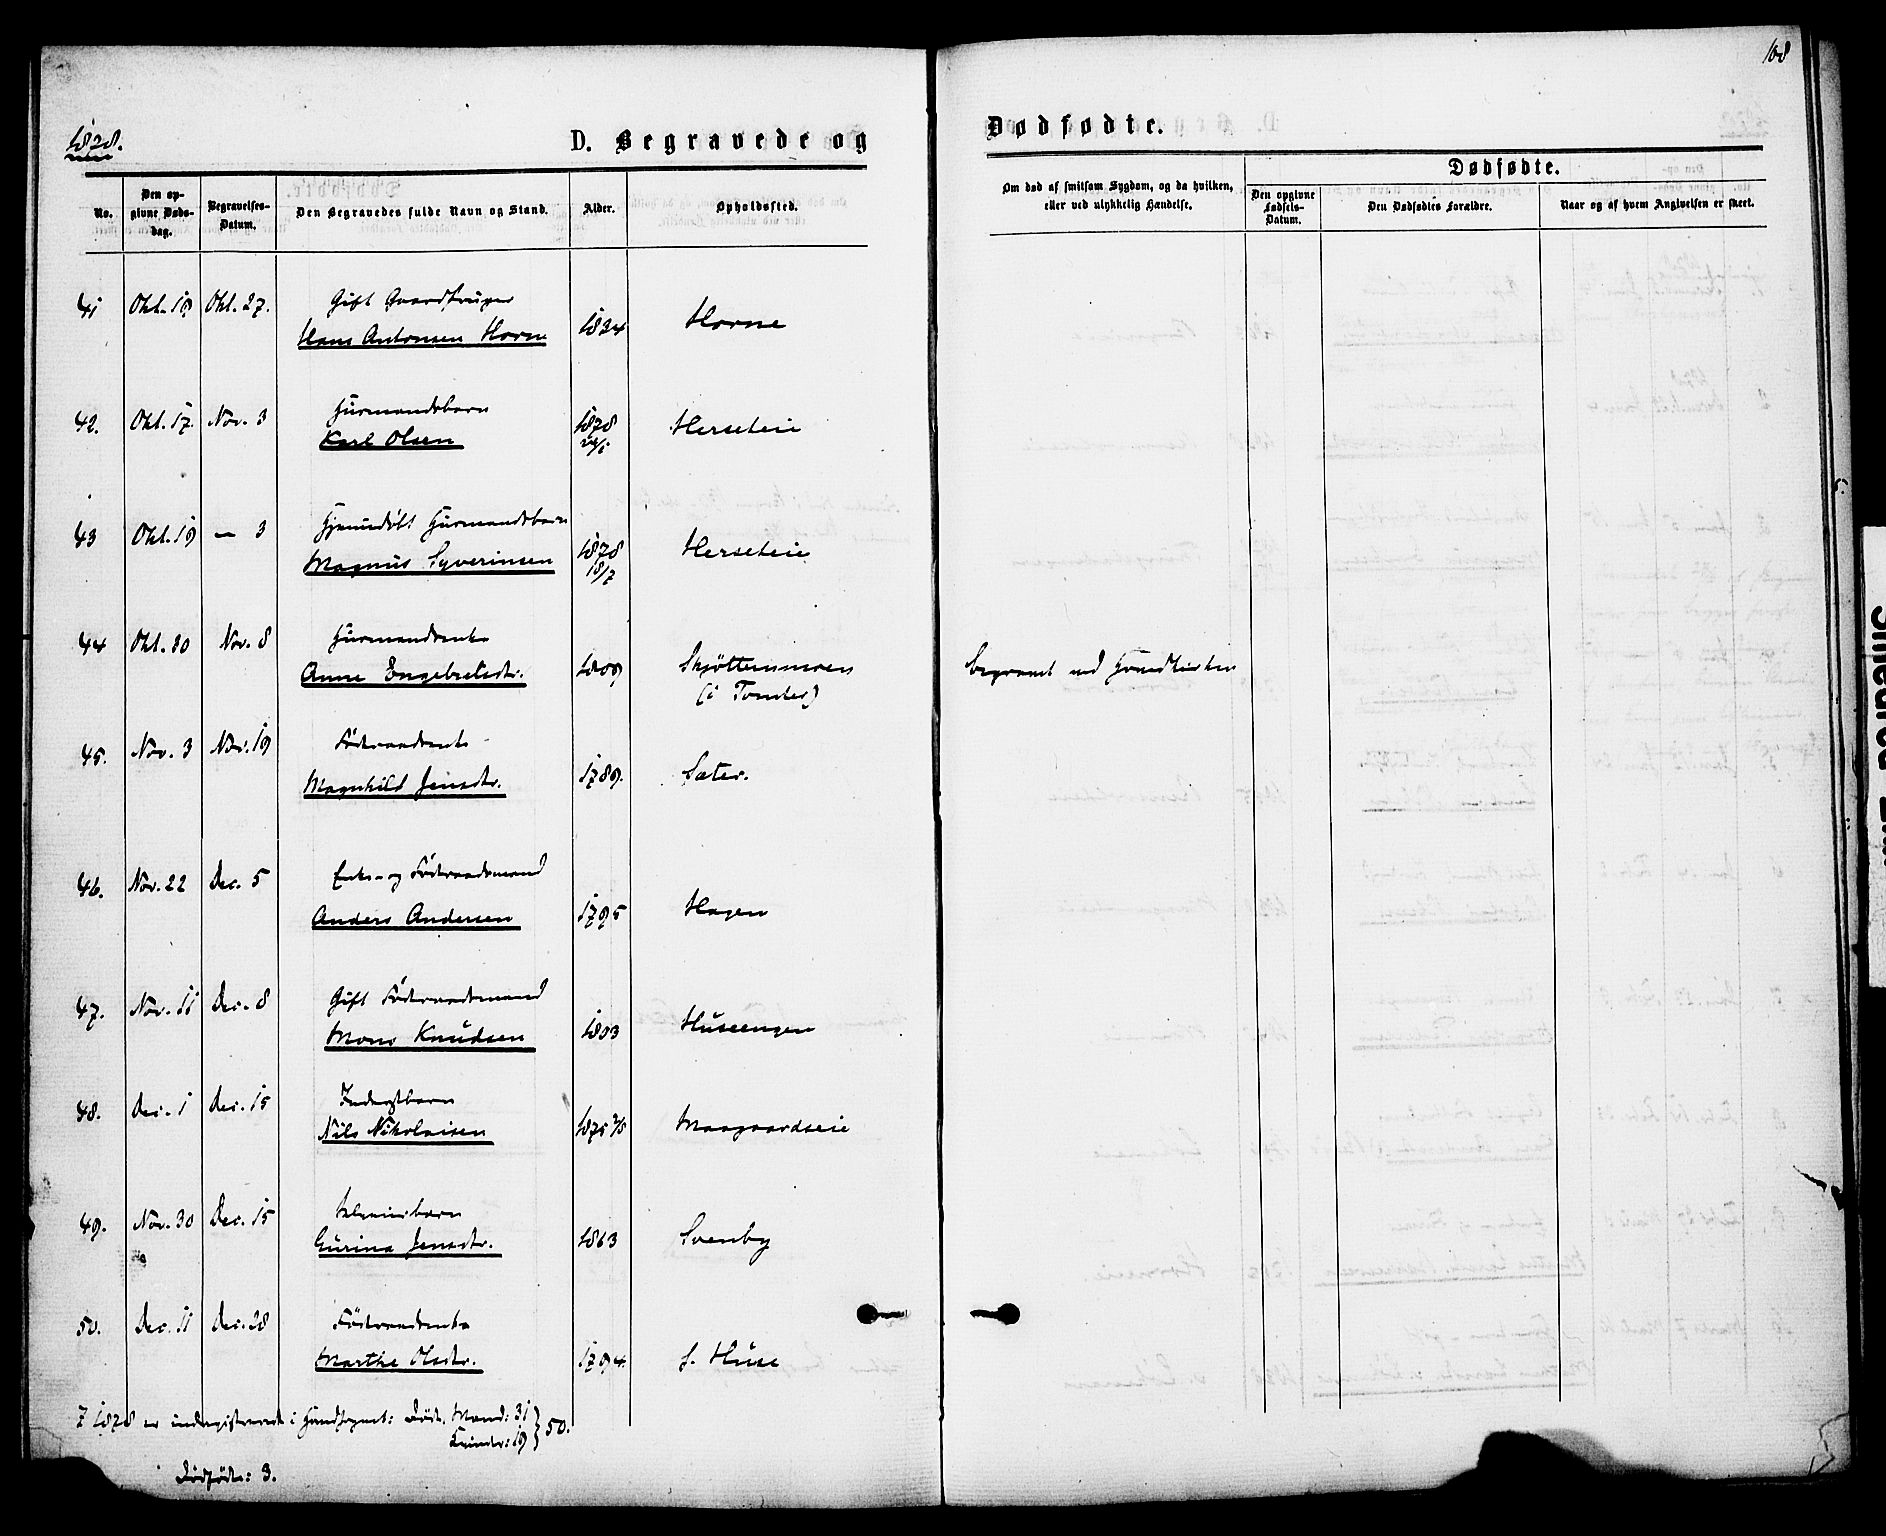 108
1878.
D. Begravede og Dødfødte.
No.
Den opgivne Dødsdag.
Begravelses-Datum.
Den Begravedes fulde Navn og Stand.
Alder.
Opholdssted.
Om død af smitsom Sygdom, og da hvilken, eller ved ulykkelig Hændelse.
Dødfødte.
Den opgivne Fødsels-Datum.
Den Dødfødtes Forældre.
Naar og af hvem Angivelsen er skeet.
41 Okt. 18 Okt. 27. Gift Gaardbruger
Hans Antonsen Horne 1834 Horne
42. Okt. 17. Nov. 3 Husmandsbarn
Karl Olsen 1878 Herseteie
43 Okt. 19 — 3 Hjemmedøbt Husmandsbarn
Magnus Syverinsen 1878 18/7 Herseteie
44 Okt. 30 Nov. 8 Husmandsenke
Anne Engebretsdtr. 1809 Skjøttensmoen
(i Tomter) begravet ved Hovedkirken
45. Nov. 3 Nov. 19 Føderaadsenke
Magnhild Jensdtr. 1789. Sæter.
46. Nov. 22 Dec. 5 Enke- og Føderaadsmand
Anders Andersen 1795 Hagen
47. Nov. 11 Dec. 8 Gift Føderaadsmand
Mons Knudsen 1803 Huseengen
48. Dec. 1 Dec. 15 Inderstbarn
Nils Nikolaisen 1875 2/5 Maagaardseie
49. Nov. 30 Dec. 15
Gurina Jensdtr. 1863 Svenby
50. Dec. 11 Dec. 28 Føderaadsenke
Marthe Olsdtr. 1794. S. Huse
I 1878 er indregistreret i Hovedsognet: Døde, Mænd: 31
Kvinder: 19 } 50.
Dødfødte: 3.